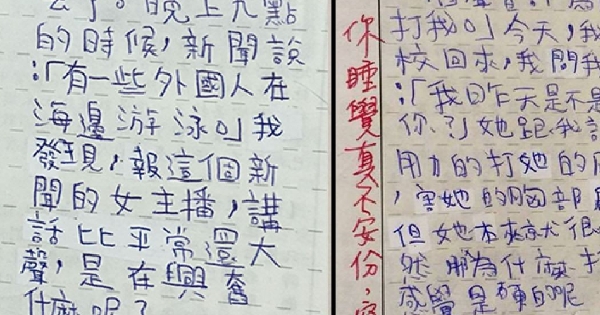 了。晚上九點
的時候,新聞說
:「有一些外國人在
海邊游泳。」我
發現,報這個新
聞的女主播,講
話比平常還大
聲,是在興奮
什麼呢?
你睡覺真不安份,
打我。」今天,我
校回來,我問我
:「我昨天是不是
你?」她跟我說
用力的打她的
,害她的胸部
但她本來就很
然那為什麼打
感覺是硬的呢